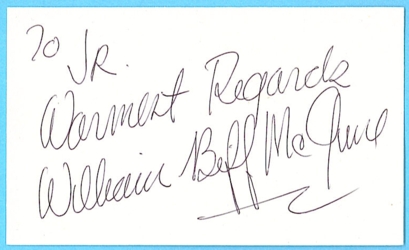 To JR.
Warmest Regards
William Biff McGuire